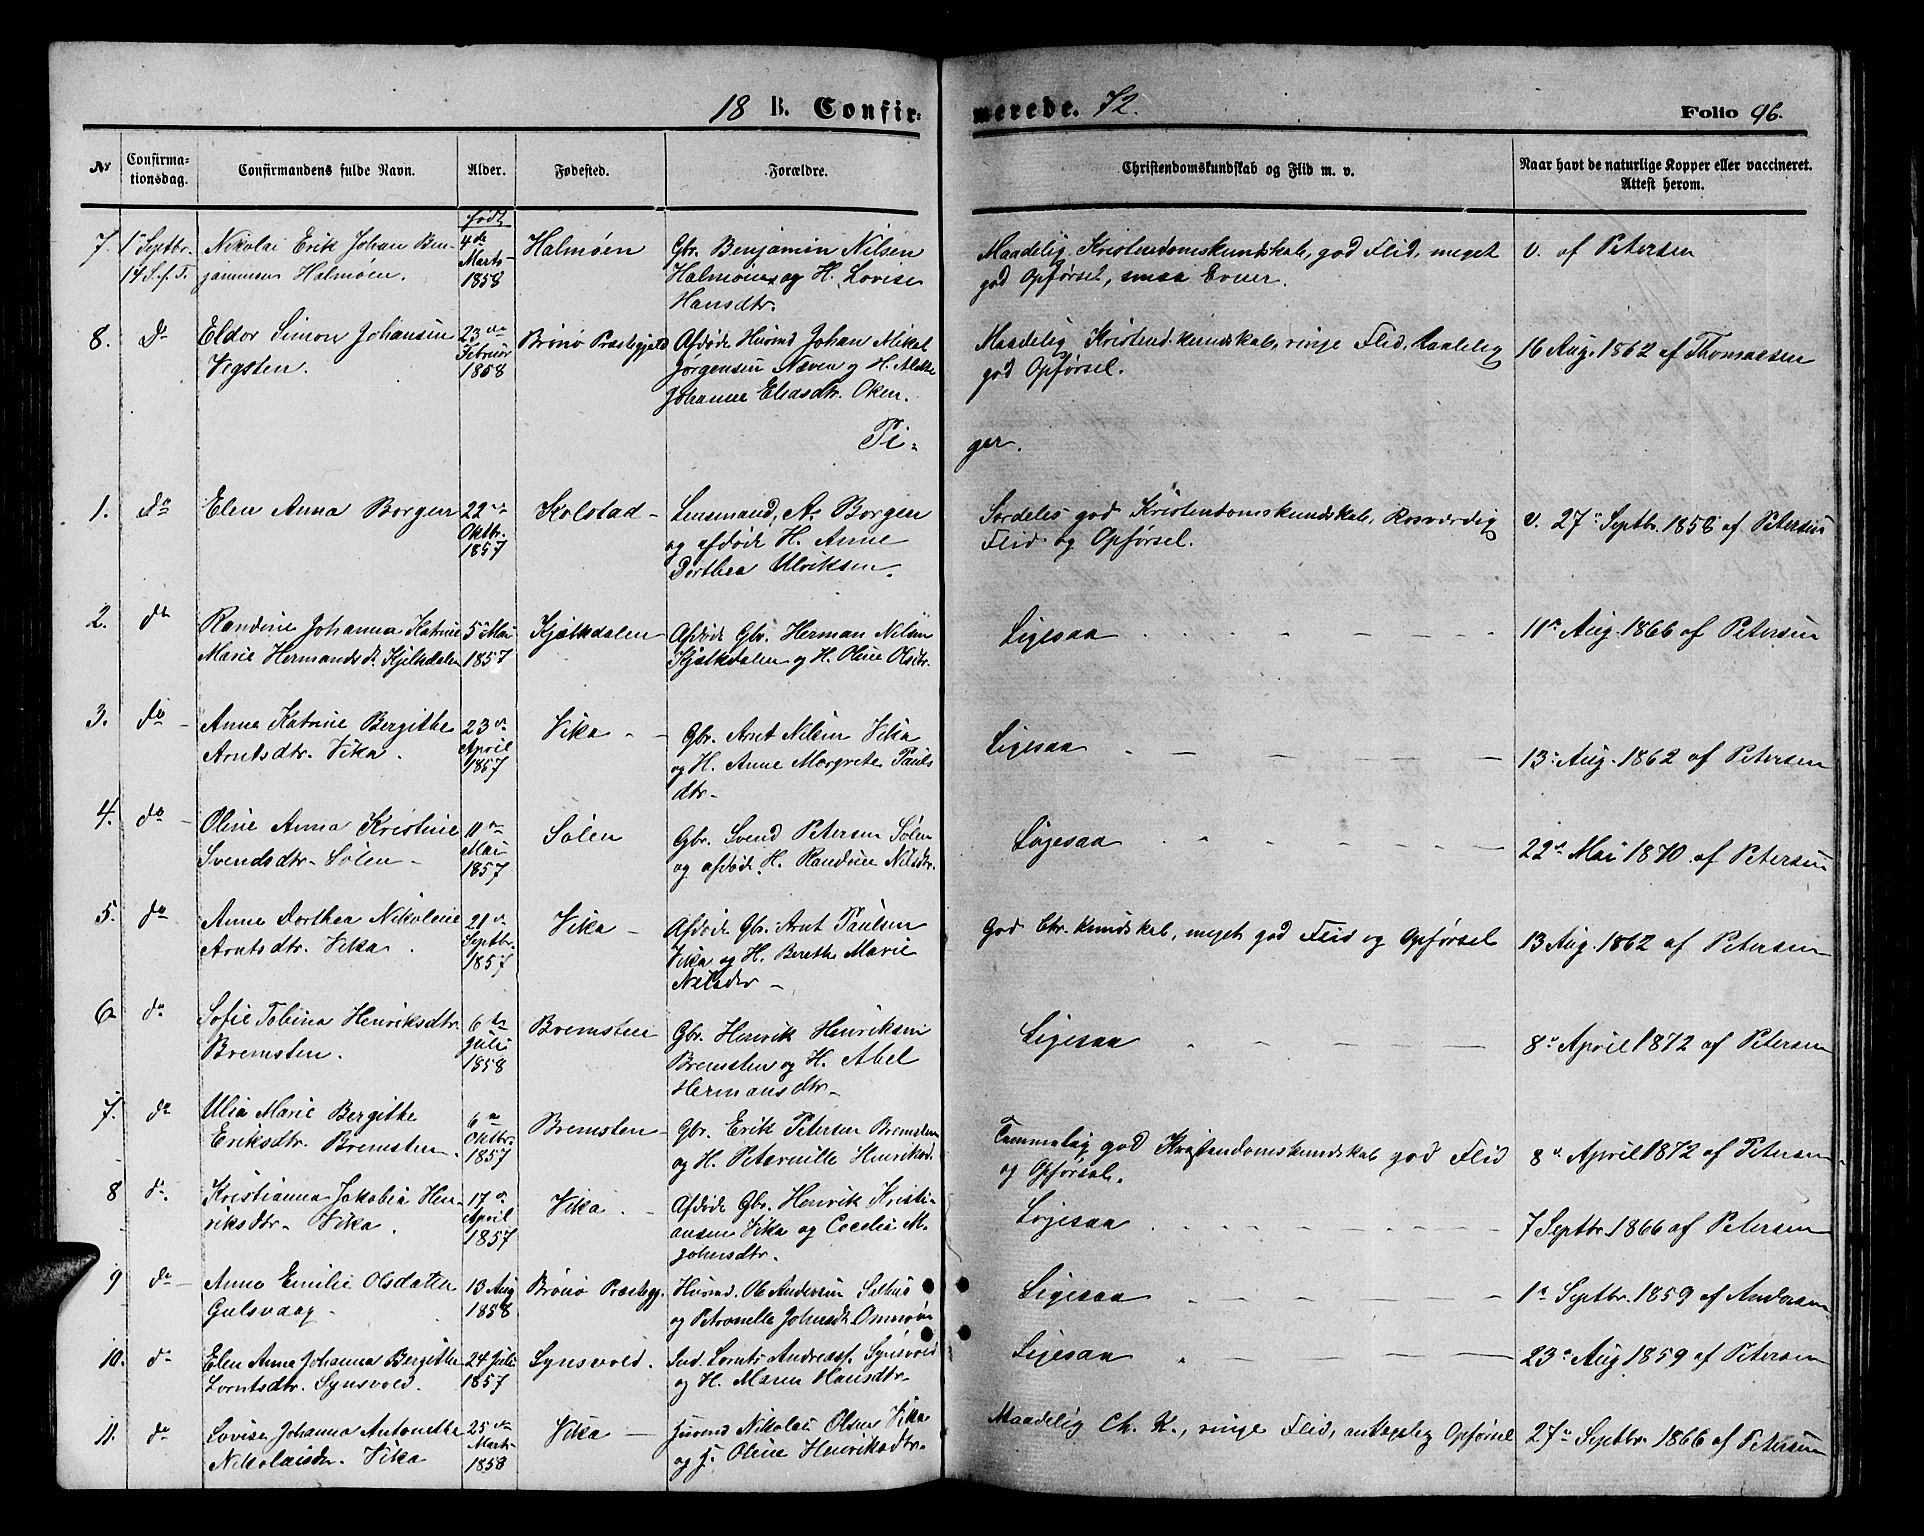 18 B. Confirmerede. 72. Folio 96.
Nr Confirmationsdag. Confirmandens fulde Navn. Alder. Fødested. Forældre. Christendomskundskab og Flid m. v. Naar havt de naturlige Kopper eller vaccineret. Attest herom.
født
7. 1ste Septbr. Nikolai Erik Johan Ben- 4de Halmøen Gbr. Benjamin Nilsen Maadelig Kristendomskundskab, god Flid, meget v. af Petersen
14 S. f. T. jaminsen Halmøen. Marts Halmøen og H. Lovise god Opførsel, smaa Evner.
1858 Hansdtr.
8. Do Eldor Simon Johansen 23de Brønø Præstegjeld Afdøde Huusmd Johan Mikal Maadelig Kristend.kundskab, ringe Flid, taalelig 16 Aug. 1862 af Thomassen
Vegsten. Februar Jørgensen Næven og H. god Opførsel.
1858 Johanne Eliasdtr. Oken.
Pi- ger.
1. Do Elen Anna Borgen 22de Kolstad - Lensmand, A. Borgen Særdeles god Kristendomskundskab, Rosværdig v. 27de Septbr. 1858 af Petersen
Oktbr. og afdøde H. Anne Flid og Opførsel.
1857 Dorthea Ulriksen.
2. do Randine Johanna Katrine 5te Mai Kjælkdalen - Afdøde Gbr. Herman Nilsen Ligesaa 11te Aug. 1866 af Petersen
Marie Hermandsdr. Kjelkdalen 1857 Kjælkdalen og H. Oline Olsdtr.
3. do Anna Katrine Bergithe 23de Vika - Gbr. Arnt Nilsen Vika Ligesaa 13de Aug. 1862 af Petersen
Arntsdtr. Vika. April og H. Anne Margrete Pauls
1857 dtr.
4. do Oline Anna Kristine 11te Sølen Gbr. Svend Petersen Sølen Ligesaa 22de Mai 1870 af Petersen
Svendsdtr. Sølen - Mai og afdøde H. Randine Nilsdtr.
1857
5. do Anne Dorthea Nikoleie 21de Vika - Afdøde Gbr. Arnt Paulsen God Chr. kundskab, meget god Flid og Opførsel 13 Aug. 1862 af Petersen
Arntsdtr. Vika. Septbr. Vika og H. Berethe Marie
1857 Nilsdtr -
6 do Sofie Tobina Henriksdtr. 6te Bremsten Gbr. Henrik Henriksen Ligesaa 8de April 1872 af Petersen
Bremsten. Juli Bremsten og H. Abel
1858 Hermansdtr -
7. do Ulia Marie Bergithe 6te Bremsten - Gbr. Erik Petersen Bremsten Temmelig god Kristendomskundskab god Flid 8de April 1872 af Petersen
Eriksdtr. Bremsten. Oktbr. og H. Peternille Henriksd. og Opførsel.
1857
8 do. Kristianna Jakobia Hen- 17de Vika. - Afdøde Gbr. Henrik Kristi- Ligesaa 7 Septbr. 1866 af Petersen
riksdtr. Vika. April ansen Vika og Cecelie M.
1857 Johnsdtr.
9 do Anna Emilie Olsdatter 13 Aug Brønø Præstegj. Huusmd. Ole Andersen Selhus Ligesaa 1ste Septbr. 1859 af Andersen
Gulsvaag. 1858 og Petronelle Johnsdtr. Omnøen
10. do Elen Anna Johanna Bergithe 24 Juli Synsvold. Ind. Lornts Andreass. Synsvold Ligesaa 23de Aug 1859 af Petersen
Lorntsdtr. Synsvold. 1857 og H. Maren Hansdtr.
11. do Lovise Johanna Antonethe 25de Vika - Huusmd Nikolai Olsen Vika Maadelig Ch. K., ringe Flid, antagelig Opførsel 27de Septbr. 1866 af Petersen
Nikolaisdr. Vika Marts og H. Oline Henriksdtr.
1858